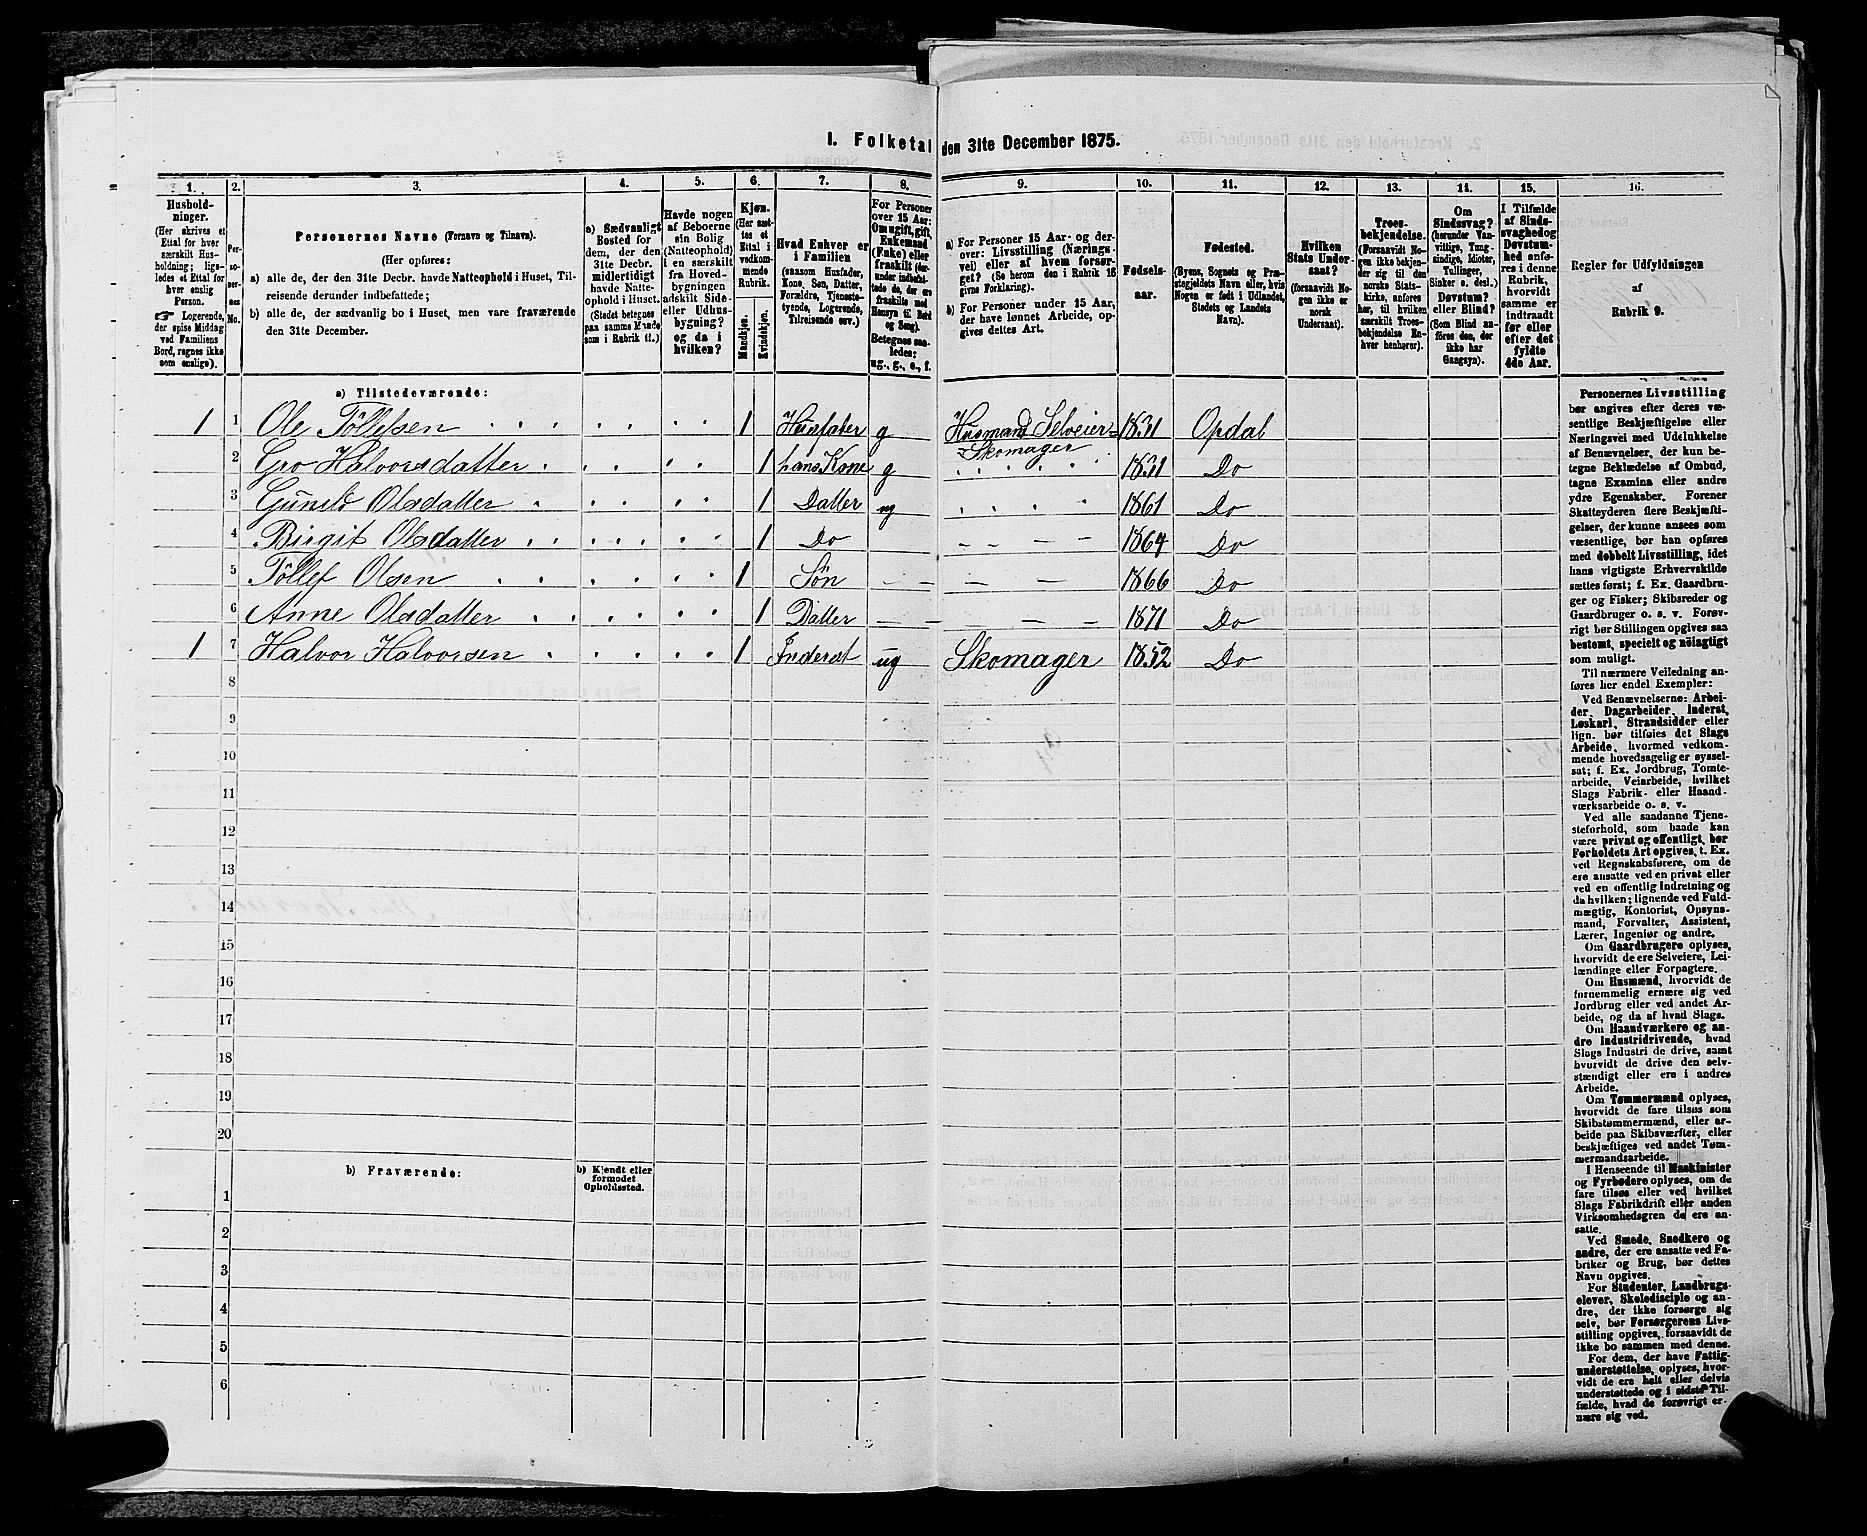 1. Folketal den 31te December 1875.
1. 2. 3. 4. 5. 6. 7. 8. 9. 10. 11. 12. 13. 14. 15. 16.
Hushold-
ninger.
(Her skrives et
Ettal for hver
særskilt Hus-
holdning; lige-
ledes et Ettal for
hver enslig
Person.
☞ Logerende,
der spise Middag
ved Familiens
Bord, regnes ikke
som enslige).
Per-
so-
ner-
nes
No.
Personernes Navne (Fornavn og Tilnavn).
(Her opføres:
a) alle de, der den 31te Decbr. havde Natteophold i Huset, Til-
reisende derunder indbefattede;
b) alle de, der sædvanlig bo i Huset, men vare fraværende
den 31te December.
a) Sædvanligt
Bosted for
dem, der den
31te Decbr.
midlertidigt
havde Natte-
ophold i Huset.
(Stedet betegnes
paa samme Maade
som i Rubrik 11.)
Havde nogen
af Beboerne
sin Bolig
(Natteophold)
i en særskilt
fra Hoved-
bygningen
adskilt Side-
eller Udhus-
bygning?
og da i
hvilken?
Kjøn.
(Her sæt-
tes et
Ettal i
vedkom-
mende
Rubrik.
Mandkjøn.
Kvindekjøn.
Hvad Enhver er
i Familien
(saasom Husfader,
Kone, Søn, Datter,
Forældre, Tjeneste-
tyende, Logerende,
Tilreisende osv.)
For Personer
over 15 Aar:
Om ugift, gift,
Enkemand
(Enke) eller
fraskilt
Betegnes saa-
ledes;
ug., g., e., f.
a) For Personer 15 Aar- og der-
over: Livsstilling (Nærings-
vei) eller af hvem forsør-
get? (Se herom den i Rubrik 16
givne Forklaring).
b) For Personer under 15 Aar,
der have lønnet Arbeide, op-
gives dettes Art.
Fødsels-
aar.
Fødested.
(Byens, Sognets og Præ-
stegjeldets Navn eller, hvis
Nogen er født i Udlandet,
Stedets og Landets
Navn).
Hvilken
Stats Under-
saat?
(forsaavidt No-
gen ikke er
norsk
Undersaat).
Troes-
bekjendelse.
(Forsaavidt No-
gen ikke bekjen-
der sig til den
norske Stats-
kirke, anføres
her, til hvilken
særskilt Troes-
bekjendelse En-
hver henhører).
Om
Sindssvag?
(herunder Van-
vittige, Tung-
sindige, Idioter,
Tullinger,
Sinker o. desl.)
Døvstum?
eller Blind?
(Som Blind an-
føres den, der
ikke har
Gangsyn).
I Tilfælde
af Sinds-
svaghed og
Døvstum-
hed anfø-
res i denne
Rubrik,
hvorvidt
samme er
indtraadt
før eller
efter det
fyldte
4de Aar.
Regler for Udfyldningen
af
Rubrik 9.
a) Tilstedeværende:
1 1 Ole Töllefsen 1 Husfater g Husmand Selveier = Skomager 1831 Opdal
2 Gro Halvorsdatter 1 hans Kone g 1831 Do
3 Gunild Olsdatter 1 Datter ug 1861 Do
4 Birgit Olsdatter 1 Do 1864 Do
5 Töllef Olsen 1 Sön 1866 Do
6 Anne Olsdatter 1 Datter 1871 Do
1 7 Halvor Halvorsen 1 Inderst ug Skomager 1852 Do
8
9
10
11
12
13
14
15
16
17
18
19
20
b) Fraværende:
b) Kjendt eller
formodet
Opholdssted.
1
2
3
4
5
6
Personernes Livsstilling
bør angives efter deres væ-
sentlige Beskjæftigelse eller
Næringsvei med Udelukkelse
af Benævnelser, der kun be-
tegne Beklædelse af Ombud,
tagne Examina eller andre
ydre Egenskaber. Forener
Skatteyderen flere Beskjæfti-
gelser, der kunne ansees som
væsentlige, bør han opføres
med dobbelt Livsstilling, idet
hans vigtigste Erhvervskilde
sættes først; f. Ex. Gaardbru-
ger og Fisker; Skibsreder og
Gaardbruger o. s. v. Forøv-
rigt bør Stillingen opgives saa
bestemt, specielt og nöiagtigt
som muligt.
Til nærmere Veiledning an-
føres her endel Exempler:
Ved Benævnelserne: Arbei-
der, Dagarbeider, Inderst,
Løskarl, Strandsidder eller
lign. bør tilføies det Slags
Arbeide, hvormed vedkom-
mende hovedsagelig er syssel-
sat; f. Ex. Jordbrug, Tomte-
arbeide, Veiarbeide, hvilket
Slags Fabrik- eller Haand-
værksarbeide o. s. v.
Ved alle saadanne Tjene-
steforhold, som baade kan
være privat og offentligt, bør
Forholdets Art opgives, t. Ex.
ved Regnskabsførere, om de
ere ansatte ved en privat eller
ved en offentlig Indretning og
da hvilken; lignende ved Fuld-
mægtig, Kontorist, Opsyns-
mand, Forvalter, Assistent,
Lærer, Ingeniør og andre.
Om Gaardbrugere oplyses,
hvorvidt de ere Selveiere, Lei-
lændinge eller Forpagtere.
Om Husmænd, hvorvidt de
fornemmelig ernære sig ved
Jordbrug eller ved andet Ar-
beide, og da af hvad Slags.
Om Haandværkere og an-
dre Industridrivende, hvad
Slags Industri de drive, samt
hvorvidt de drive den selv-
stændigt eller ere i andres
Arbeide.
Om Tømmermænd oplyses,
hvorvidt de fare tilsøs som
Skibstømmermænd, eller ar-
beide paa Skibsværfter, eller
beskjæftiges ved andet Tøm-
mermandsarbeide.
I Henseende til Maskinister
og Fyrbødere oplyses, om de
fare tilsøs eller ved hvilket
Slags Fabrikdrift eller anden
Virksomhedsgren de ere an-
satte.
Ved Smede, Snedkere og
andre, der ere ansatte ved Fa-
briker og Brug, bør dettes
Navn opgives.
For Studenter, Landbrugs-
elever, Skoledisciple og an-
dre, der ikke forsørge sig
selv, bør Forsørgerens Livs-
stilling opgives, forsaavidt de
ikke bo sammen med denne.
For dem, der have Fattig-
understøttelse, oplyses, hvor-
vidt de ere helt eller delvis
understøttede og i sidste Til-
fælde, hvad de forøvrigt er-
nære sig ved.